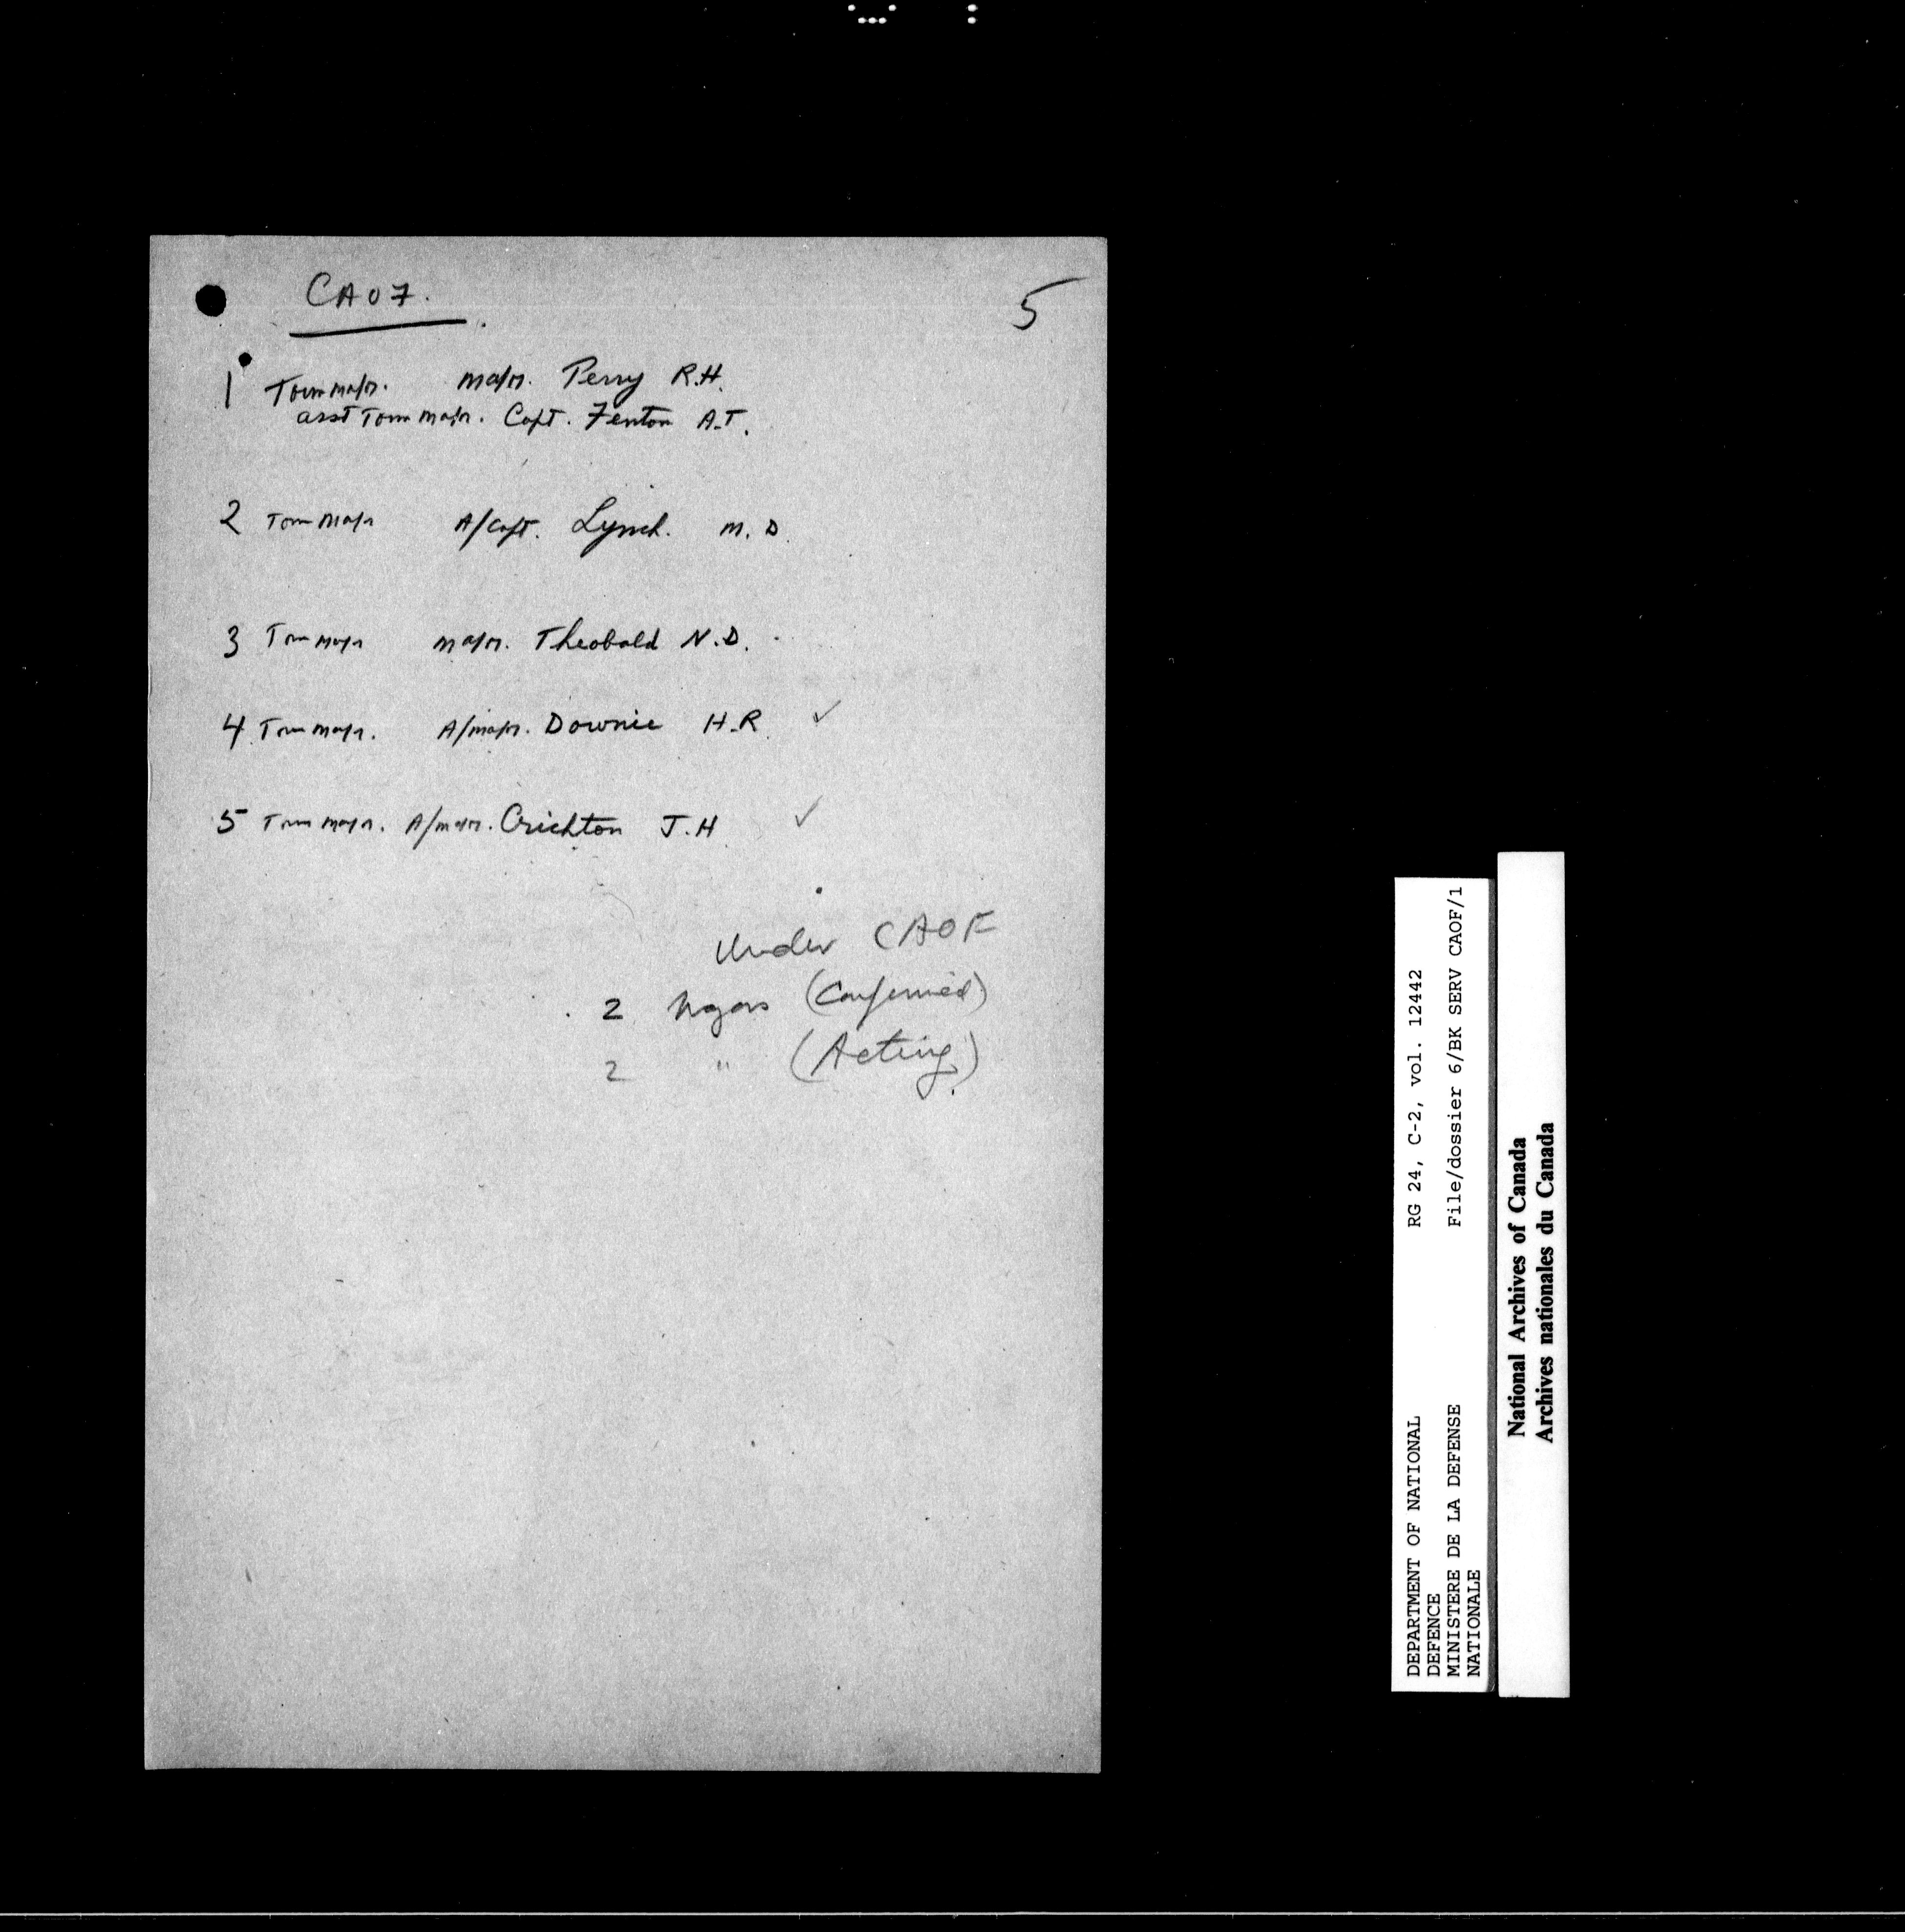 CAOF.
5
1 Town Major. Major. Perry R.H.
asst Town Major. Capt. Fenton A.T.
2 Town Major A/Capt. Lynch. M.D.
3 Town Major Major. Theobald N.D.
4 Town Major. A/Major. Downie H.R. ✓
5 Town Major. A/Major. Crichton J.H. ✓
Under CAOF
2 Majors (Confirmed)
2 " (Acting)
DEPARTMENT OF NATIONAL RG 24, C-2, vol. 12442
DEFENCE
MINISTERE DE LA DEFENSE File/dossier 6/BK SERV CAOF/1
NATIONALE
National Archives of Canada
Archives nationales du Canada